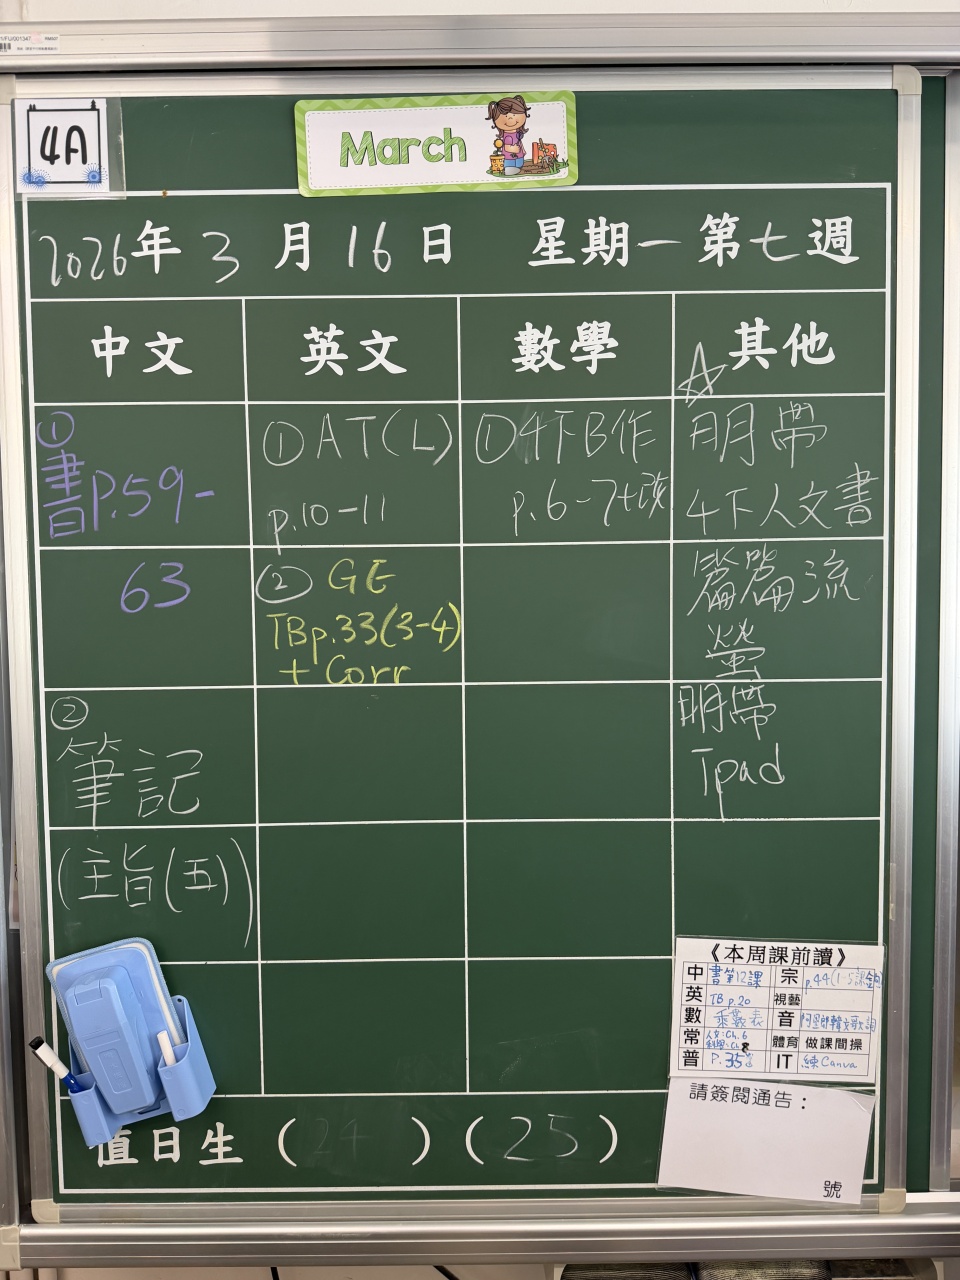 4A
March
2026年3月16日 星期一 第七週
中文 英文 數學 ☆其他
①
書P.59-
63
②
筆記
(主旨(五))
①AT(L)
p.10-11
② GE
TBp.33(3-4)
+ Corr
①4下B作
p.6-7+改
明帶
4下人文書
篇篇流
螢
明帶
Ipad
《本周課前讀》
中 書第12課
英 TB p.20
數 乘數表
常 人文:Ch.6
普 P.35
宗 p.44(1-5課
視藝
音
體育 做課間操
IT 練Canva
請簽閱通告：
號
值日生 (24) (25)